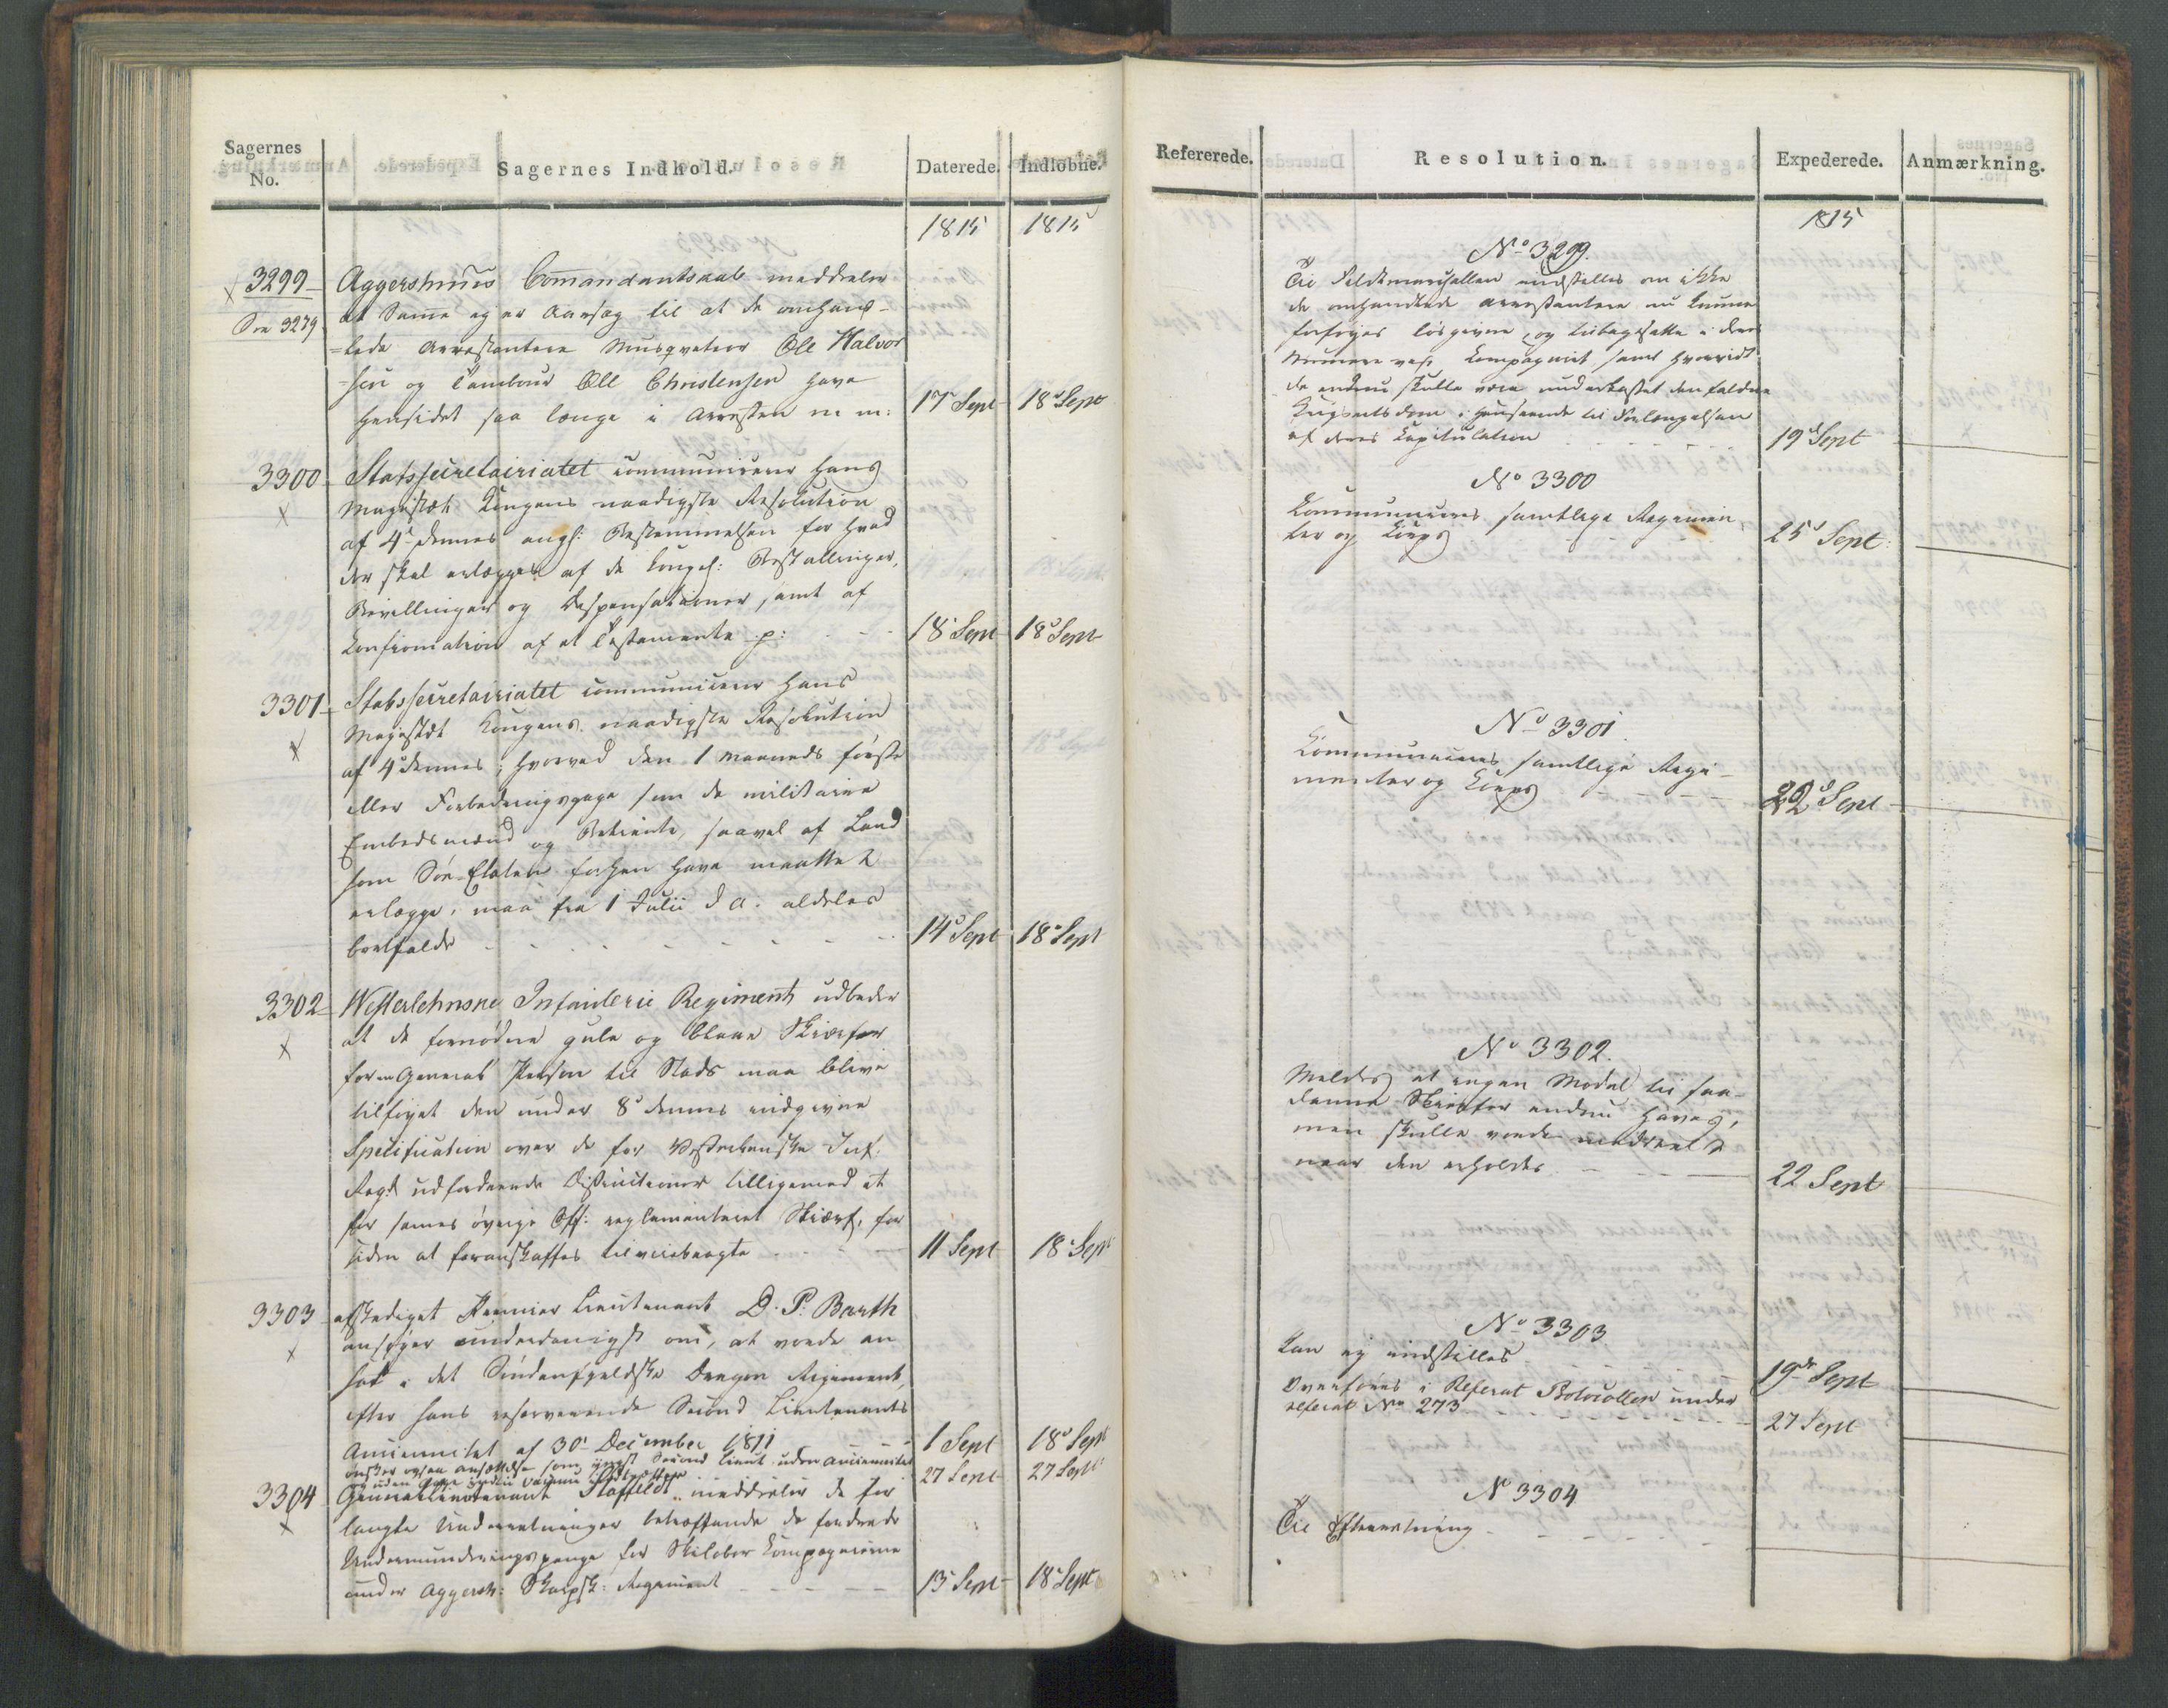 Sagernes
No.
Sagernes Indhold.
Daterede.
Indløbne.
1815
1815
3299
Soe 3279
Aggershuus Commandantskab meddeler
at Samme ej er Aarsag til at de omhand-
=lede Arrestantere Musqveteer Ole Halvor
=sen og Tambour Ole Christensen have
hensidet saa længe i Arresten m m:
17 Sept
18 Sept
3300
Statssecretairiatet communicerer Hans
Majestæt Kongens naadigste Resolution
af 4de dennes angl: Bestemmelsen for hvad
der skal erlægges af de kongel: Bestallinger,
Bevillinger og Dispensationer samt af
Confirmation af et Testamente p:
18 Sept
18 Sept
3301
Statssecretairiatet communicerer Hans
Majestæt Kongens naadigste Resolution
af 4de dennes; hvorved den 1 Maaneds første
eller Forbedringsgage som de militaire
Embedsmænd og Betiente, saavel af Land
som Søe-Etaten forhen have maattet
erlægge, maa fra 1 Julii d A. aldeles
bortfalde
14 Sept
18 Sept
3302
Westerlehnske Infanterie Regiment udbeder
at de fornødne gule og blaae Skiærfer
for en General Person til Stads maa blive
tilføyet den under 8de dennes indgivne
Specification over de for Vesterlenske Inf:
Regt udfordrende Distinctioner tilligemed et
for sammes øvrige Off: reglementeret Skiærf, for
siden at foranskaffes
11 Sept
18 Sept
3303
afskediget Premier Lieutenant D. P. Barth
ansøger underdanigst om, at vorde an
sat i det Søndenfjeldske Dragon Regiment,
efter hans reserverende Second Lieutenants
Anciennitet af 30te December 1811
ønsker ogsaa ansættelse som yngst Second Lieut. uden anciennitet
1 Sept
18 Sept
27 Sept
27 Sept
3304
General Lieutenant Staffeldt meddeler de for
langte Underretninger betræffende de fordrede
Undermunderingspenge for Skiløber Compagnierne
under Aggersh: Skarpsk: Regiment
13 Sept
18 Sept
Refererede.
Resolution.
Expederede.
Anmærkning.
1815
No 3299.
Til Feldtmarschallen indstilles om ikke
de omhandlede Arrestantere nu kunne
forføyes løsgivne, og tilbagesatte i deres
Nummere ved Kompagniet samt hvorvidt
de endnu skulle være underkastet den faldne
Krigsretsdom i Henseende til Forlængelsen
af deres Capitulation
19 Sept
No 3300
Communiceres samtlige Regimen
ter og Korps
25 Sept:
No 3301.
Communiceres samtlige Regi-
menter og Korps
22 Sept
No 3302.
Meldes at ingen Model til saa-
danne Skiærfer endnu haves,
men skulle vorde meddeelt
naar den erholdes
22 Sept
No 3303
Kan ej indstilles
19de Sept
Overføres i Referat Protocollen under
referat No 273
27 Sept
No 3304
Til Efterretning